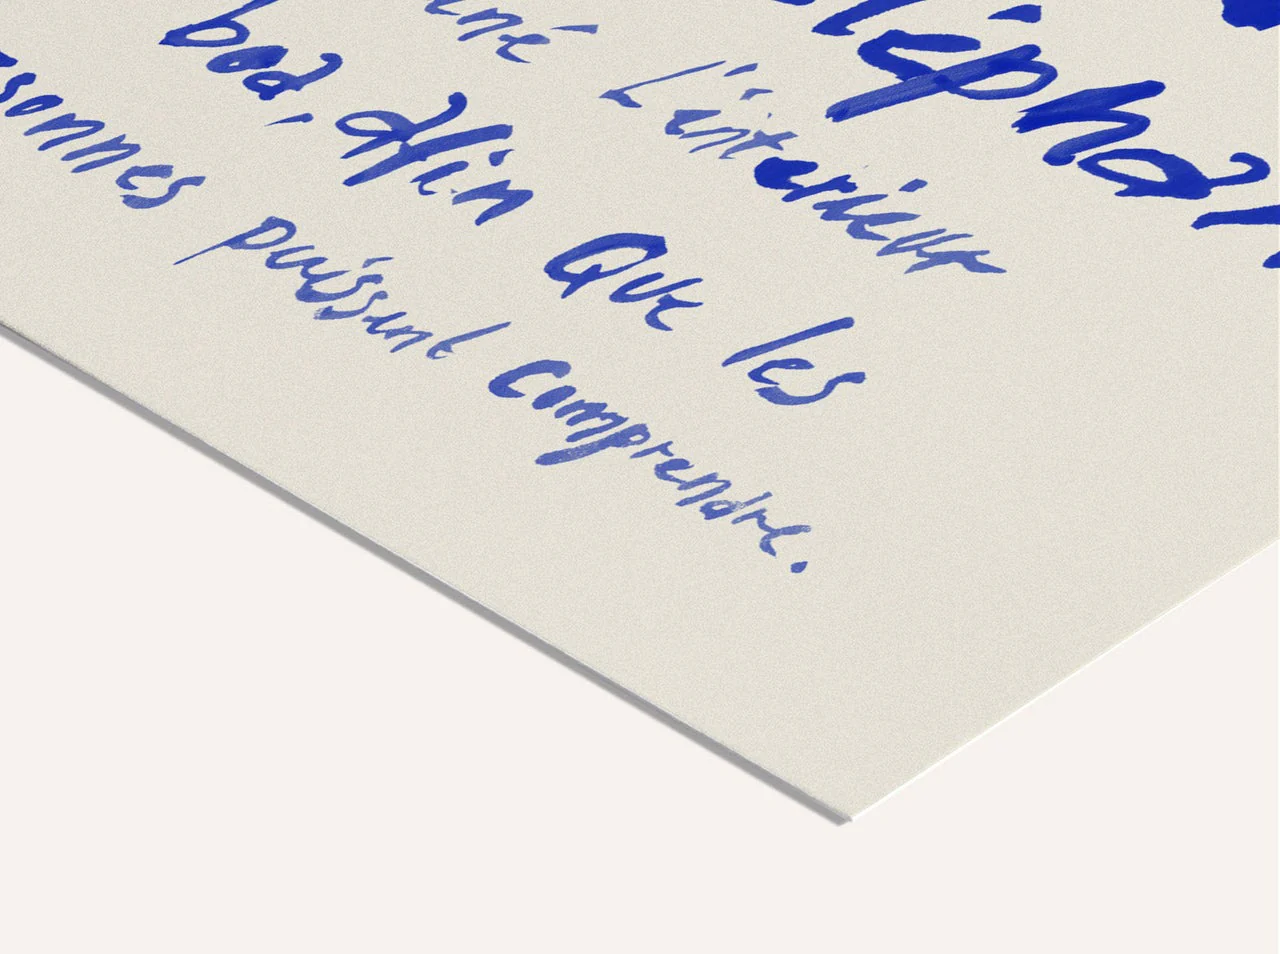 léphan
iné L'interieur
boa, afin Que les
sonnes puissent comprendre.